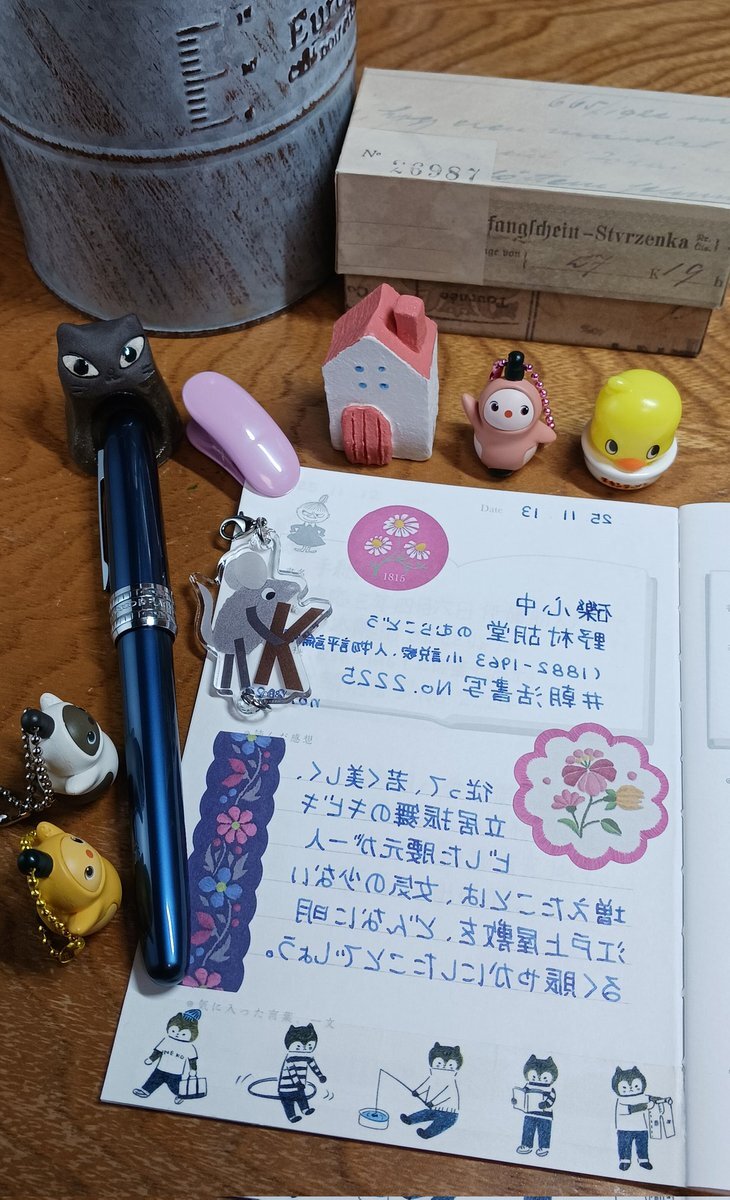 E
Nº 26987
fangſchein-Stvrzenka
K 19
Tournée
Date 25 11 13
1815
礫心中
野村胡堂 のむらこどう
(1882-1963 小説家・人物評論
#朝活書写 No.2225
K
んだ感想
従って、若く美しく、
立居振舞のキビキ
ビした腰元が一人
増えたことは、女気の少ない
江戸上屋敷を、どんなに明
るく賑やかにしたことでしょう。
●気に入った言葉、一文
NEKO